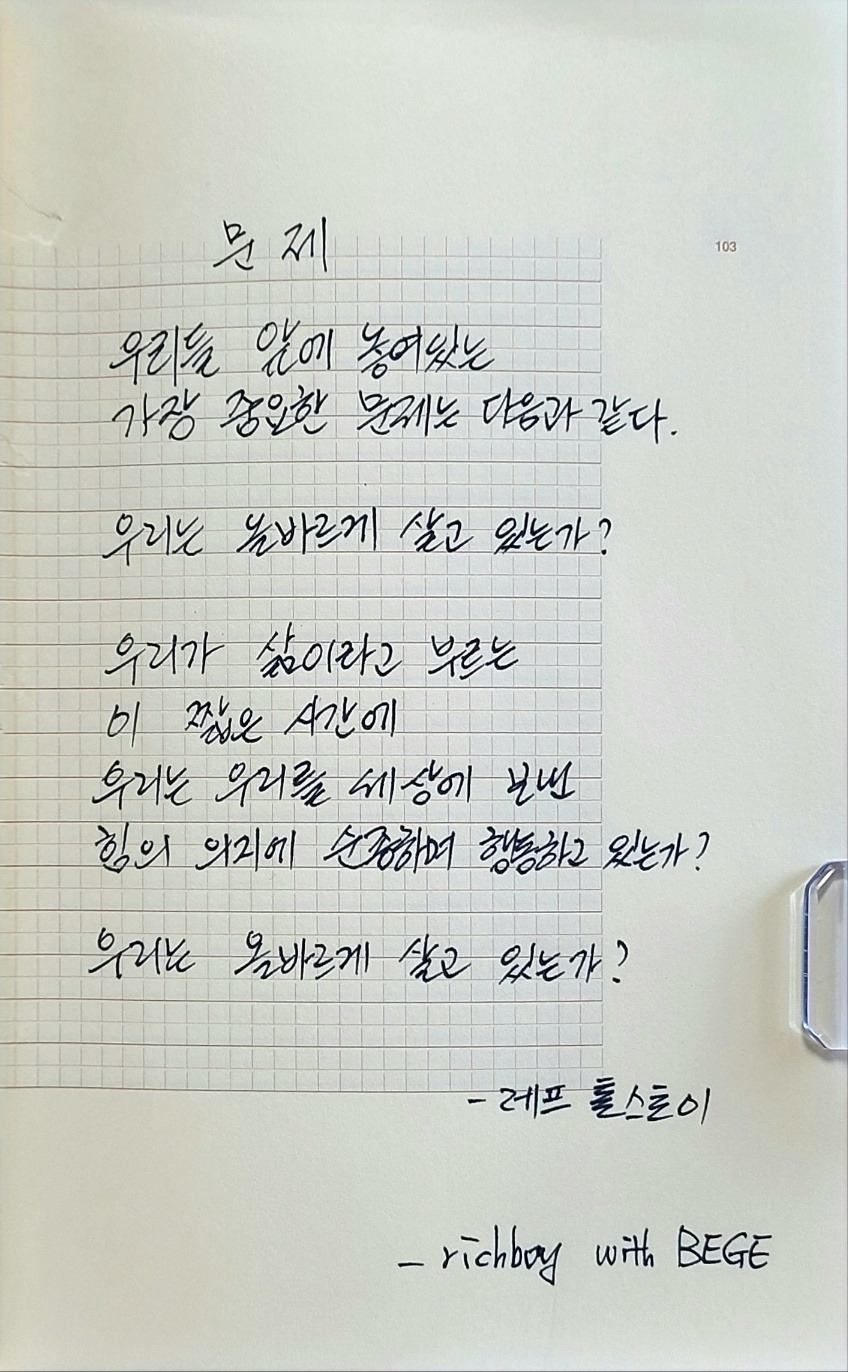 103
문제
우리들 앞에 놓여있는
가장 중요한 문제는 다음과 같다.
우리는 올바르게 살고 있는가?
우리가 삶이라고 부르는
이 짧은 시간에
우리는 우리를 세상에 보낸
힘의 의지에 순종하며 행동하고 있는가?
우리는 올바르게 살고 있는가?
- 레프 톨스토이
- richboy with BEGE